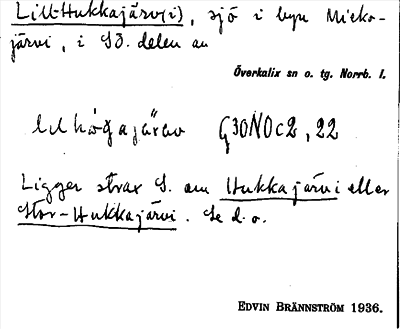 Lill-Hukkajärv(i), sjö i byn Mieko-
järvi, i SÖ. delen av
Överkalix sn o. tg. Norrb. l.
G30NOc2, 22
Ligger strax S. om Hukkajärvi eller
Stor-Hukkajärvi. Se d. o.
EDVIN BRÄNNSTRÖM 1936.